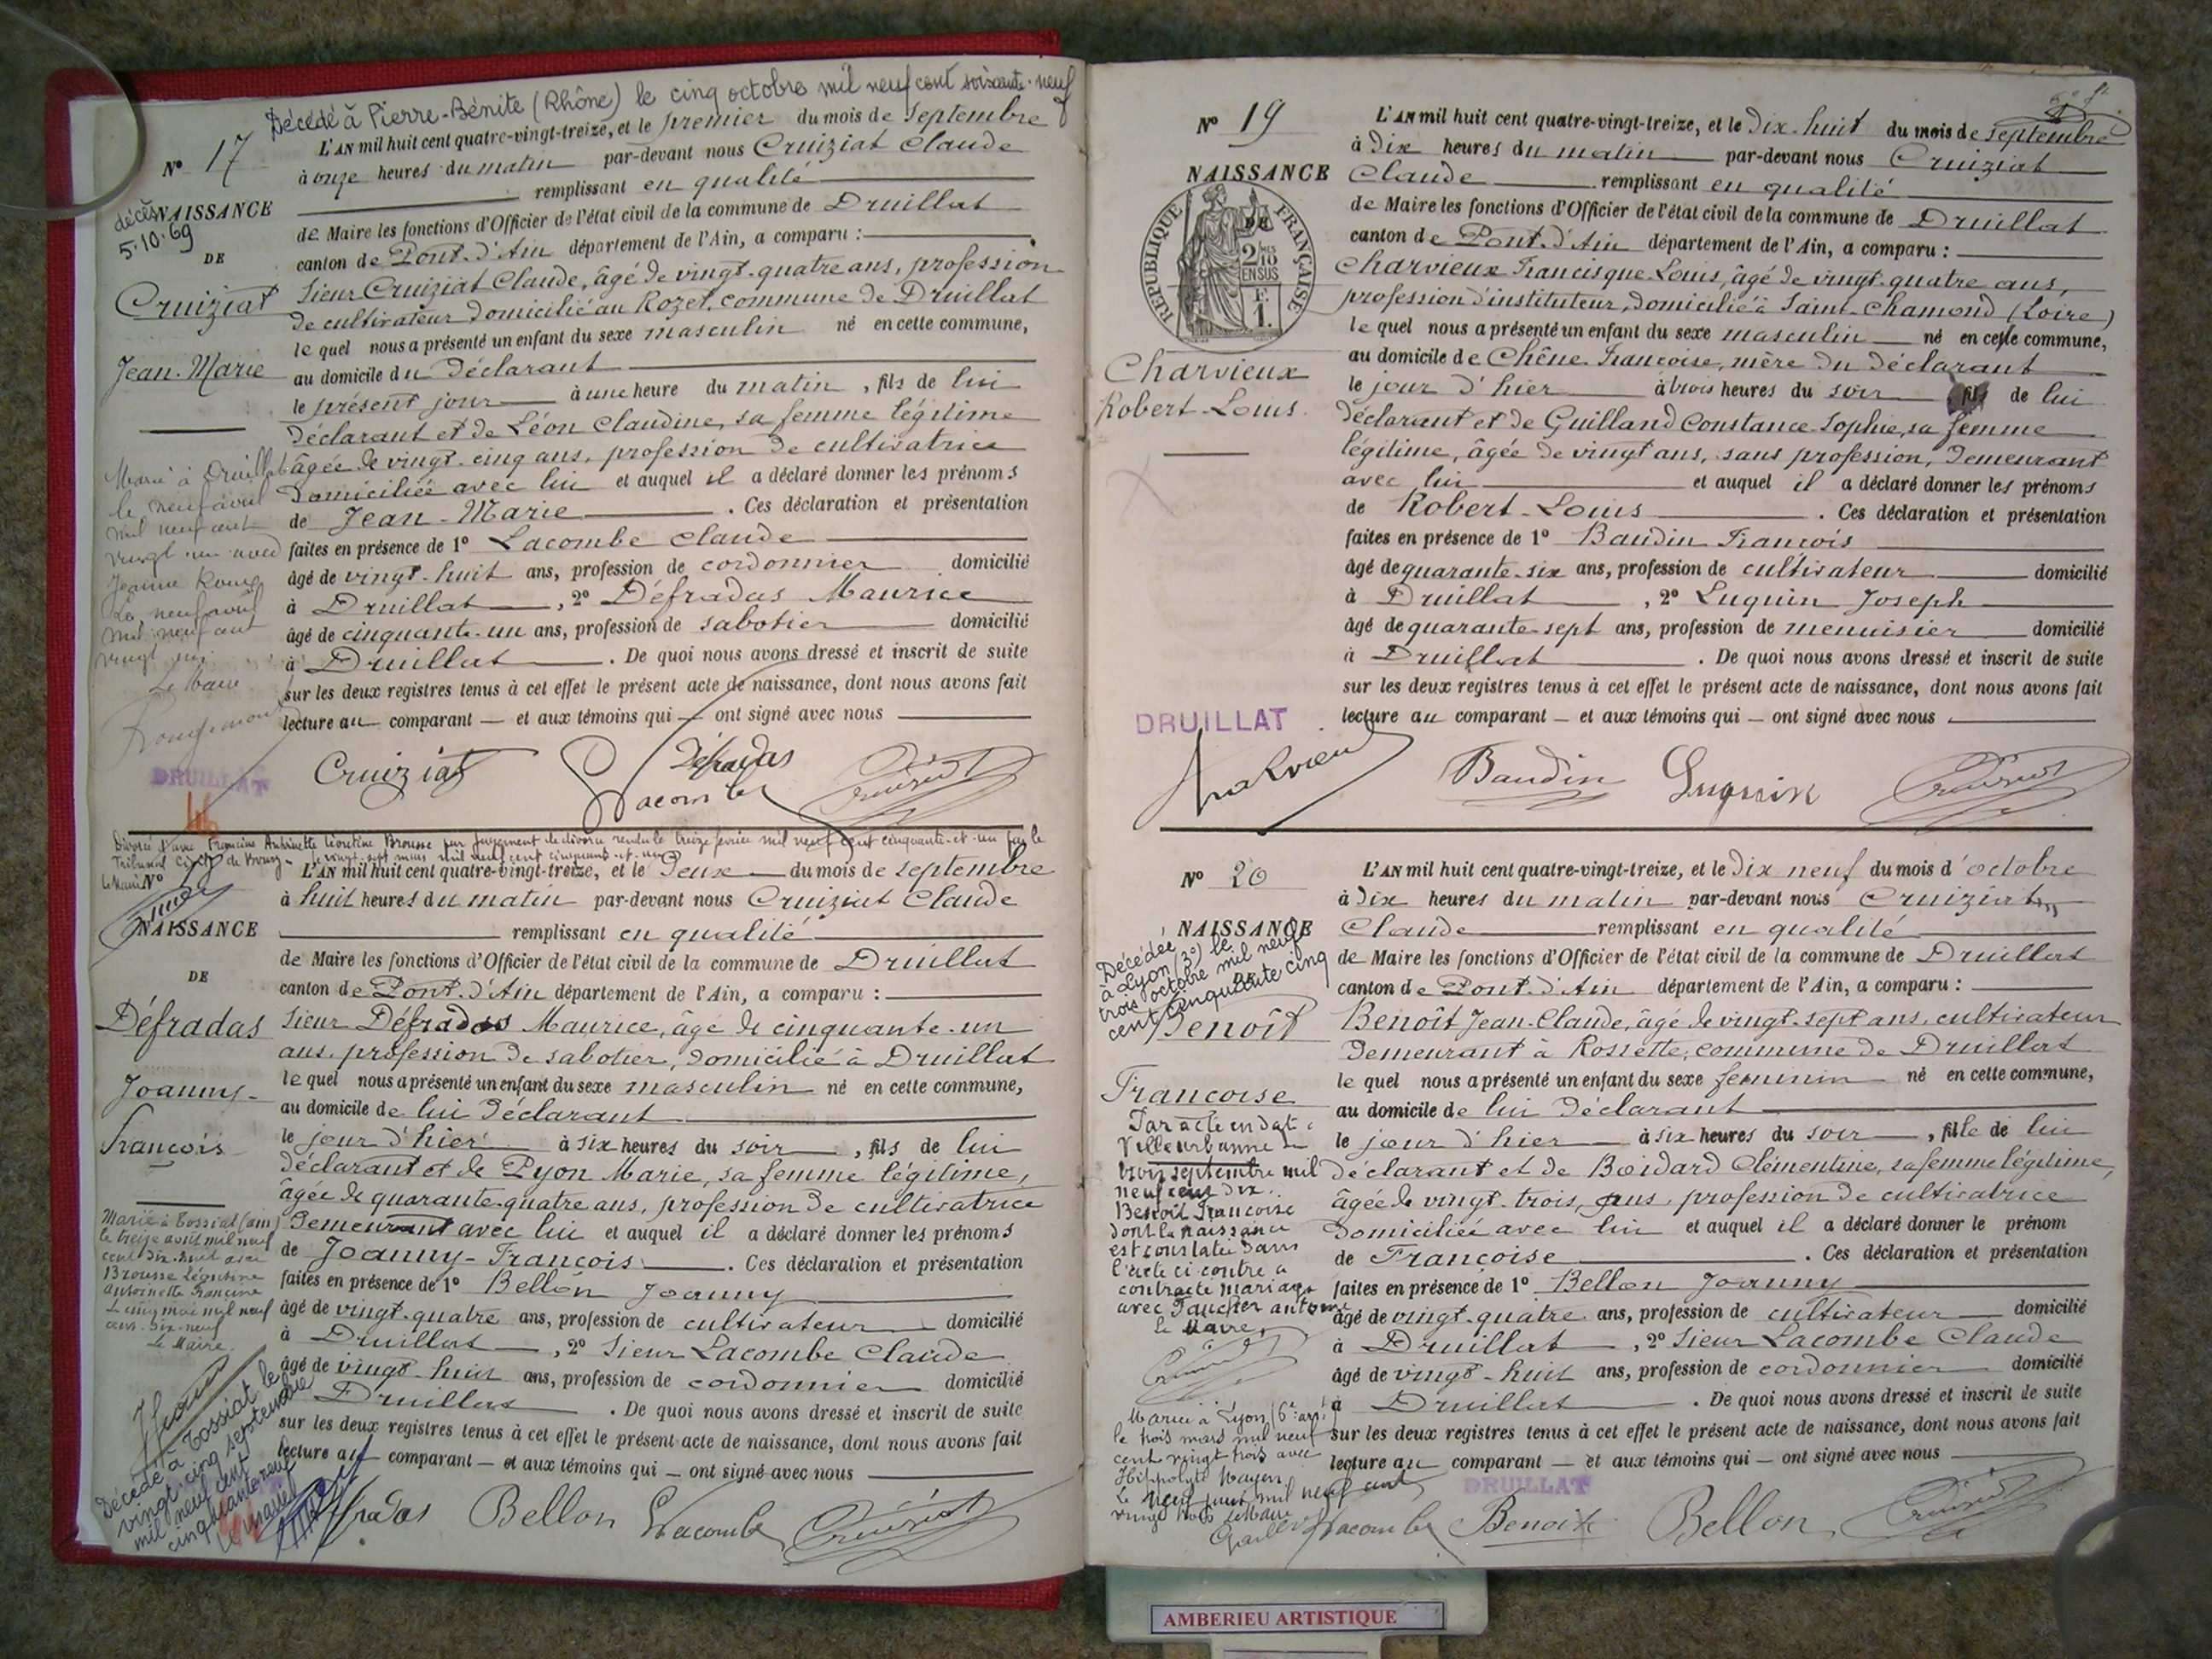 Décédé à Pierre-Bénite (Rhône) le cinq octobre mil neuf cent soixante-neuf
N° 17
L'AN mil huit cent quatre-vingt-treize, et le premier du mois de Septembre
à onze heures du matin par-devant nous Cruiziat Claude
remplissant en qualité
décès
5.10.69
NAISSANCE
DE
Cruiziat
Jean-Marie
de Maire les fonctions d'Officier de l'état civil de la commune de Druillat
canton de Pont-d'Ain département de l'Ain, a comparu :
Sieur Cruiziat Claude, âgé de vingt-quatre ans, profession
de cultivateur domicilié au Rozet, commune de Druillat
le quel nous a présenté un enfant du sexe masculin né en cette commune,
au domicile du Déclarant
le présent jour à une heure du matin, fils de lui
Déclarant et de Léon Claudine, sa femme légitime
âgée de vingt-cinq ans, profession de cultivatrice
Domiciliée avec lui et auquel il a déclaré donner les prénoms
de Jean-Marie. Ces déclaration et présentation
faites en présence de 1° Lacombe Claude
âgé de vingt-huit ans, profession de cordonnier domicilié
à Druillat, 2° Défradas Maurice
âgé de cinquante-un ans, profession de sabotier domicilié
à Druillat. De quoi nous avons dressé et inscrit de suite
sur les deux registres tenus à cet effet le présent acte de naissance, dont nous avons fait
lecture au comparant — et aux témoins qui — ont signé avec nous
Marié à Druillat
le neuf avril
mil neuf cent
vingt-un avec
Jeanne
Le neuf avril
mil neuf cent
vingt un
Le Maire
DRUILLAT
Cruiziat Lacombe Défradas Cruiziat
46
Divorcé d'avec Francine Antoinette Léontine Brousse par jugement de divorce rendu le treize février mil neuf cent cinquante-et-un par le
Tribunal Civil de Bourg - le vingt-sept mars mil neuf cent cinquante-et-un
Le Maire
N° 18
L'AN mil huit cent quatre-vingt-treize, et le Deux du mois de septembre
à huit heures du matin par-devant nous Cruiziat Claude
remplissant en qualité
NAISSANCE
DE
Défradas
Joanny-
François
de Maire les fonctions d'Officier de l'état civil de la commune de Druillat
canton de Pont-d'Ain département de l'Ain, a comparu :
Sieur Défradas Maurice, âgé de cinquante-un
ans, profession de sabotier, domicilié à Druillat
le quel nous a présenté un enfant du sexe masculin né en cette commune,
au domicile de lui Déclarant
le jour d'hier à six heures du soir, fils de lui
déclarant et de Pyon Marie, sa femme légitime,
âgée de quarante-quatre ans, profession de cultivatrice
Demeurant avec lui et auquel il a déclaré donner les prénoms
de Joanny-François. Ces déclaration et présentation
faites en présence de 1° Bellon Joanny
âgé de vingt-quatre ans, profession de cultivateur domicilié
à Druillat, 2° Sieur Lacombe Claude
âgé de vingt-huit ans, profession de cordonnier domicilié
Druillat. De quoi nous avons dressé et inscrit de suite
sur les deux registres tenus à cet effet le présent acte de naissance, dont nous avons fait
lecture au comparant — et aux témoins qui — ont signé avec nous
Marié à Tossiat (ain)
le treize avril mil neuf
cent dix-huit avec
Brousse Léontine
antoinette Francine
Le cinq mai mil neuf
cent-dix-neuf
Le Maire
Décédé à Tossiat le
vingt cinq septembre
mil neuf cent
cinquante neuf
Le Maire
Défradas Bellon Lacombe Cruiziat
N° 19
L'AN mil huit cent quatre-vingt-treize, et le Dix-huit du mois de septembre
à Dix heures du matin par-devant nous Cruiziat
Claude remplissant en qualité
NAISSANCE
DE
RÉPUBLIQUE FRANÇAISE
2/10
EN SUS
F.
1.
Charvieux
Robert-Louis
de Maire les fonctions d'Officier de l'état civil de la commune de Druillat
canton de Pont-d'Ain département de l'Ain, a comparu :
Charvieux Francisque-Louis, âgé de vingt-quatre ans,
profession d'instituteur, domicilié à Saint-Chamond (Loire)
le quel nous a présenté un enfant du sexe masculin né en cette commune,
au domicile de Chêne Françoise, mère du déclarant
le jour d'hier à trois heures du soir fils de lui
déclarant et de Guilland Constance-Sophie, sa femme
légitime, âgée de vingt ans, sans profession, Demeurant
avec lui et auquel il a déclaré donner les prénoms
de Robert-Louis. Ces déclaration et présentation
faites en présence de 1° Baudin François
âgé de quarante-six ans, profession de cultivateur domicilié
à Druillat, 2° Luquin Joseph
âgé de quarante-sept ans, profession de menuisier domicilié
à Druillat. De quoi nous avons dressé et inscrit de suite
sur les deux registres tenus à cet effet le présent acte de naissance, dont nous avons fait
lecture au comparant — et aux témoins qui — ont signé avec nous
DRUILLAT
Charvieux Baudin Luquin Cruiziat
N° 20
L'AN mil huit cent quatre-vingt-treize, et le Dix neuf du mois d'octobre
à Dix heures du matin par-devant nous Cruiziat
Claude remplissant en qualité
NAISSANCE
DE
Décédée
à Lyon (3e) le
trois octobre mil neuf
cent cinquante cinq
Benoît
Françoise
de Maire les fonctions d'Officier de l'état civil de la commune de Druillat
canton de Pont-d'Ain département de l'Ain, a comparu :
Benoît Jean-Claude, âgé de vingt-sept ans, cultivateur
Demeurant à Rossette, commune de Druillat
le quel nous a présenté un enfant du sexe feminin né en cette commune,
au domicile de lui Déclarant
le jour d'hier à six heures du soir, fille de lui
déclarant et de Boidard Clémentine, sa femme légitime,
âgée de vingt-trois, ans, profession de cultivatrice
Domiciliée avec lui et auquel il a déclaré donner le prénom
de Françoise. Ces déclaration et présentation
faites en présence de 1° Bellon Joanny
âgé de vingt-quatre ans, profession de cultivateur domicilié
à Druillat, 2° Sieur Lacombe Claude
âgé de vingt-huit ans, profession de cordonnier domicilié
à Druillat. De quoi nous avons dressé et inscrit de suite
sur les deux registres tenus à cet effet le présent acte de naissance, dont nous avons fait
lecture au comparant — et aux témoins qui — ont signé avec nous
Par acte en date
Villeurbanne
trois septembre mil
neuf cent dix
Benoît Françoise
dont la naissance
est constatée dans
l'acte ci contre a
contracté mariage
avec Faucher antoine
le Maire,
Mariée à Lyon (6e arr.)
le trois mars mil neuf
cent vingt trois avec
Hippolyte
Le neuf mil neuf cent
vingt trois Le Maire
DRUILLAT
Lacombe Benoit Bellon Cruiziat
AMBERIEU ARTISTIQUE